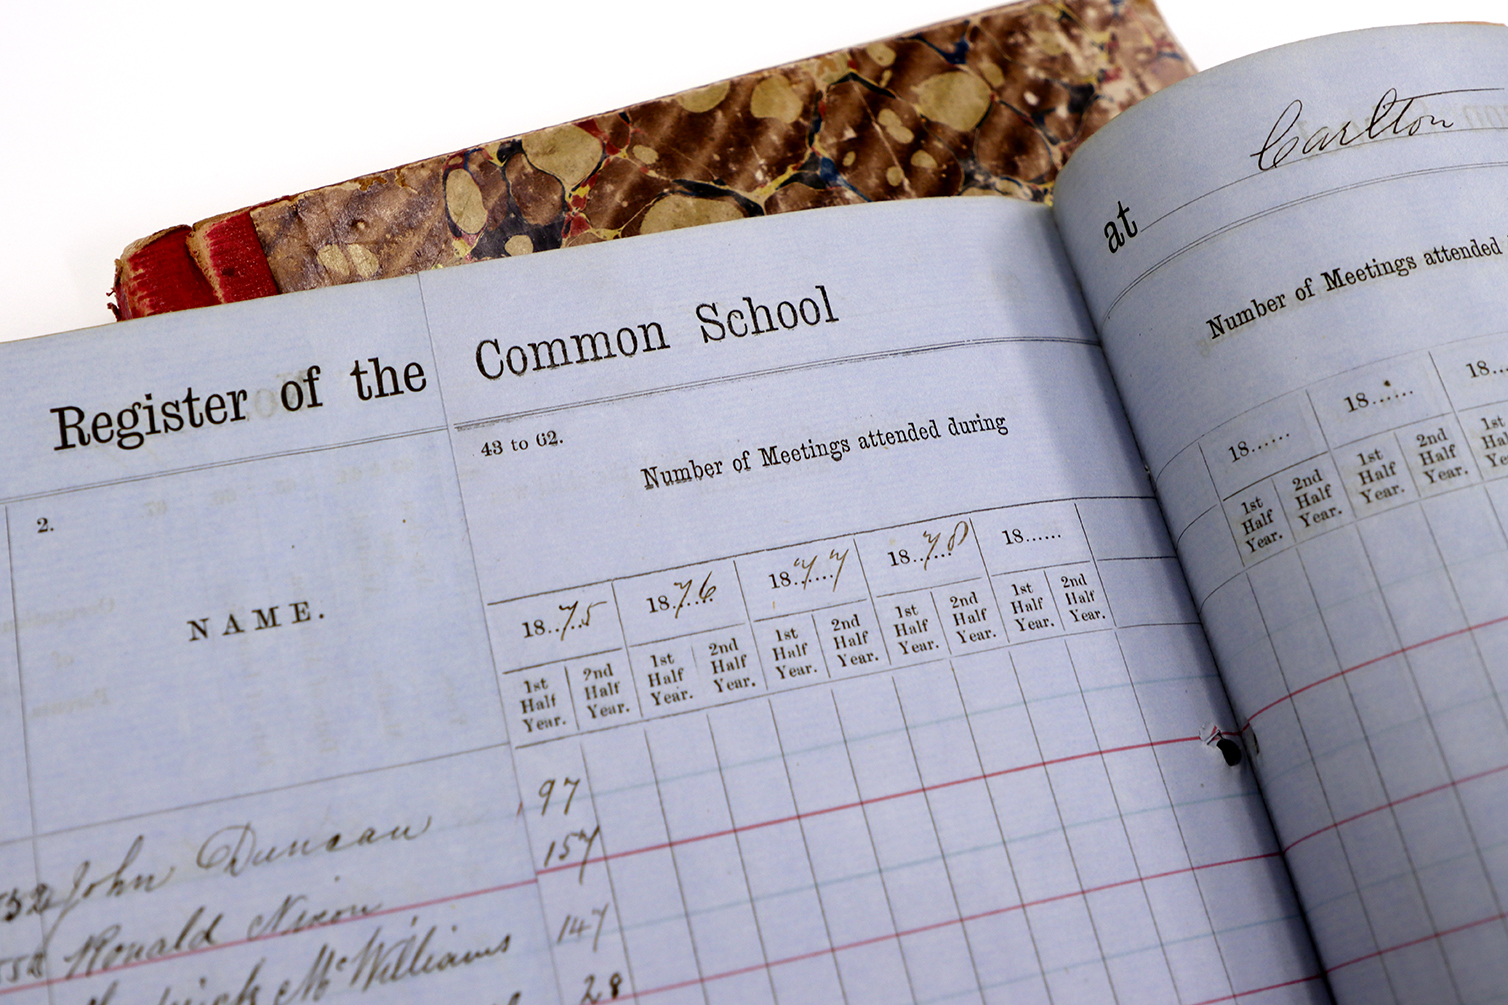 Register of the Common School
at Carlton
2.
NAME.
43 to 62.
Number of Meetings attended during
18..75 18.76 18.77 18.78 18......
1st Half Year. 2nd Half Year. 1st Half Year. 2nd Half Year. 1st Half Year. 2nd Half Year. 1st Half Year. 2nd Half Year. 1st Half Year. 2nd Half Year.
Number of Meetings attended
18...... 18...... 18...
1st Half Year. 2nd Half Year. 1st Half Year. 2nd Half Year. 1st Half
John Duncan 97
Ronald Nixon 157
McWilliams 147
28